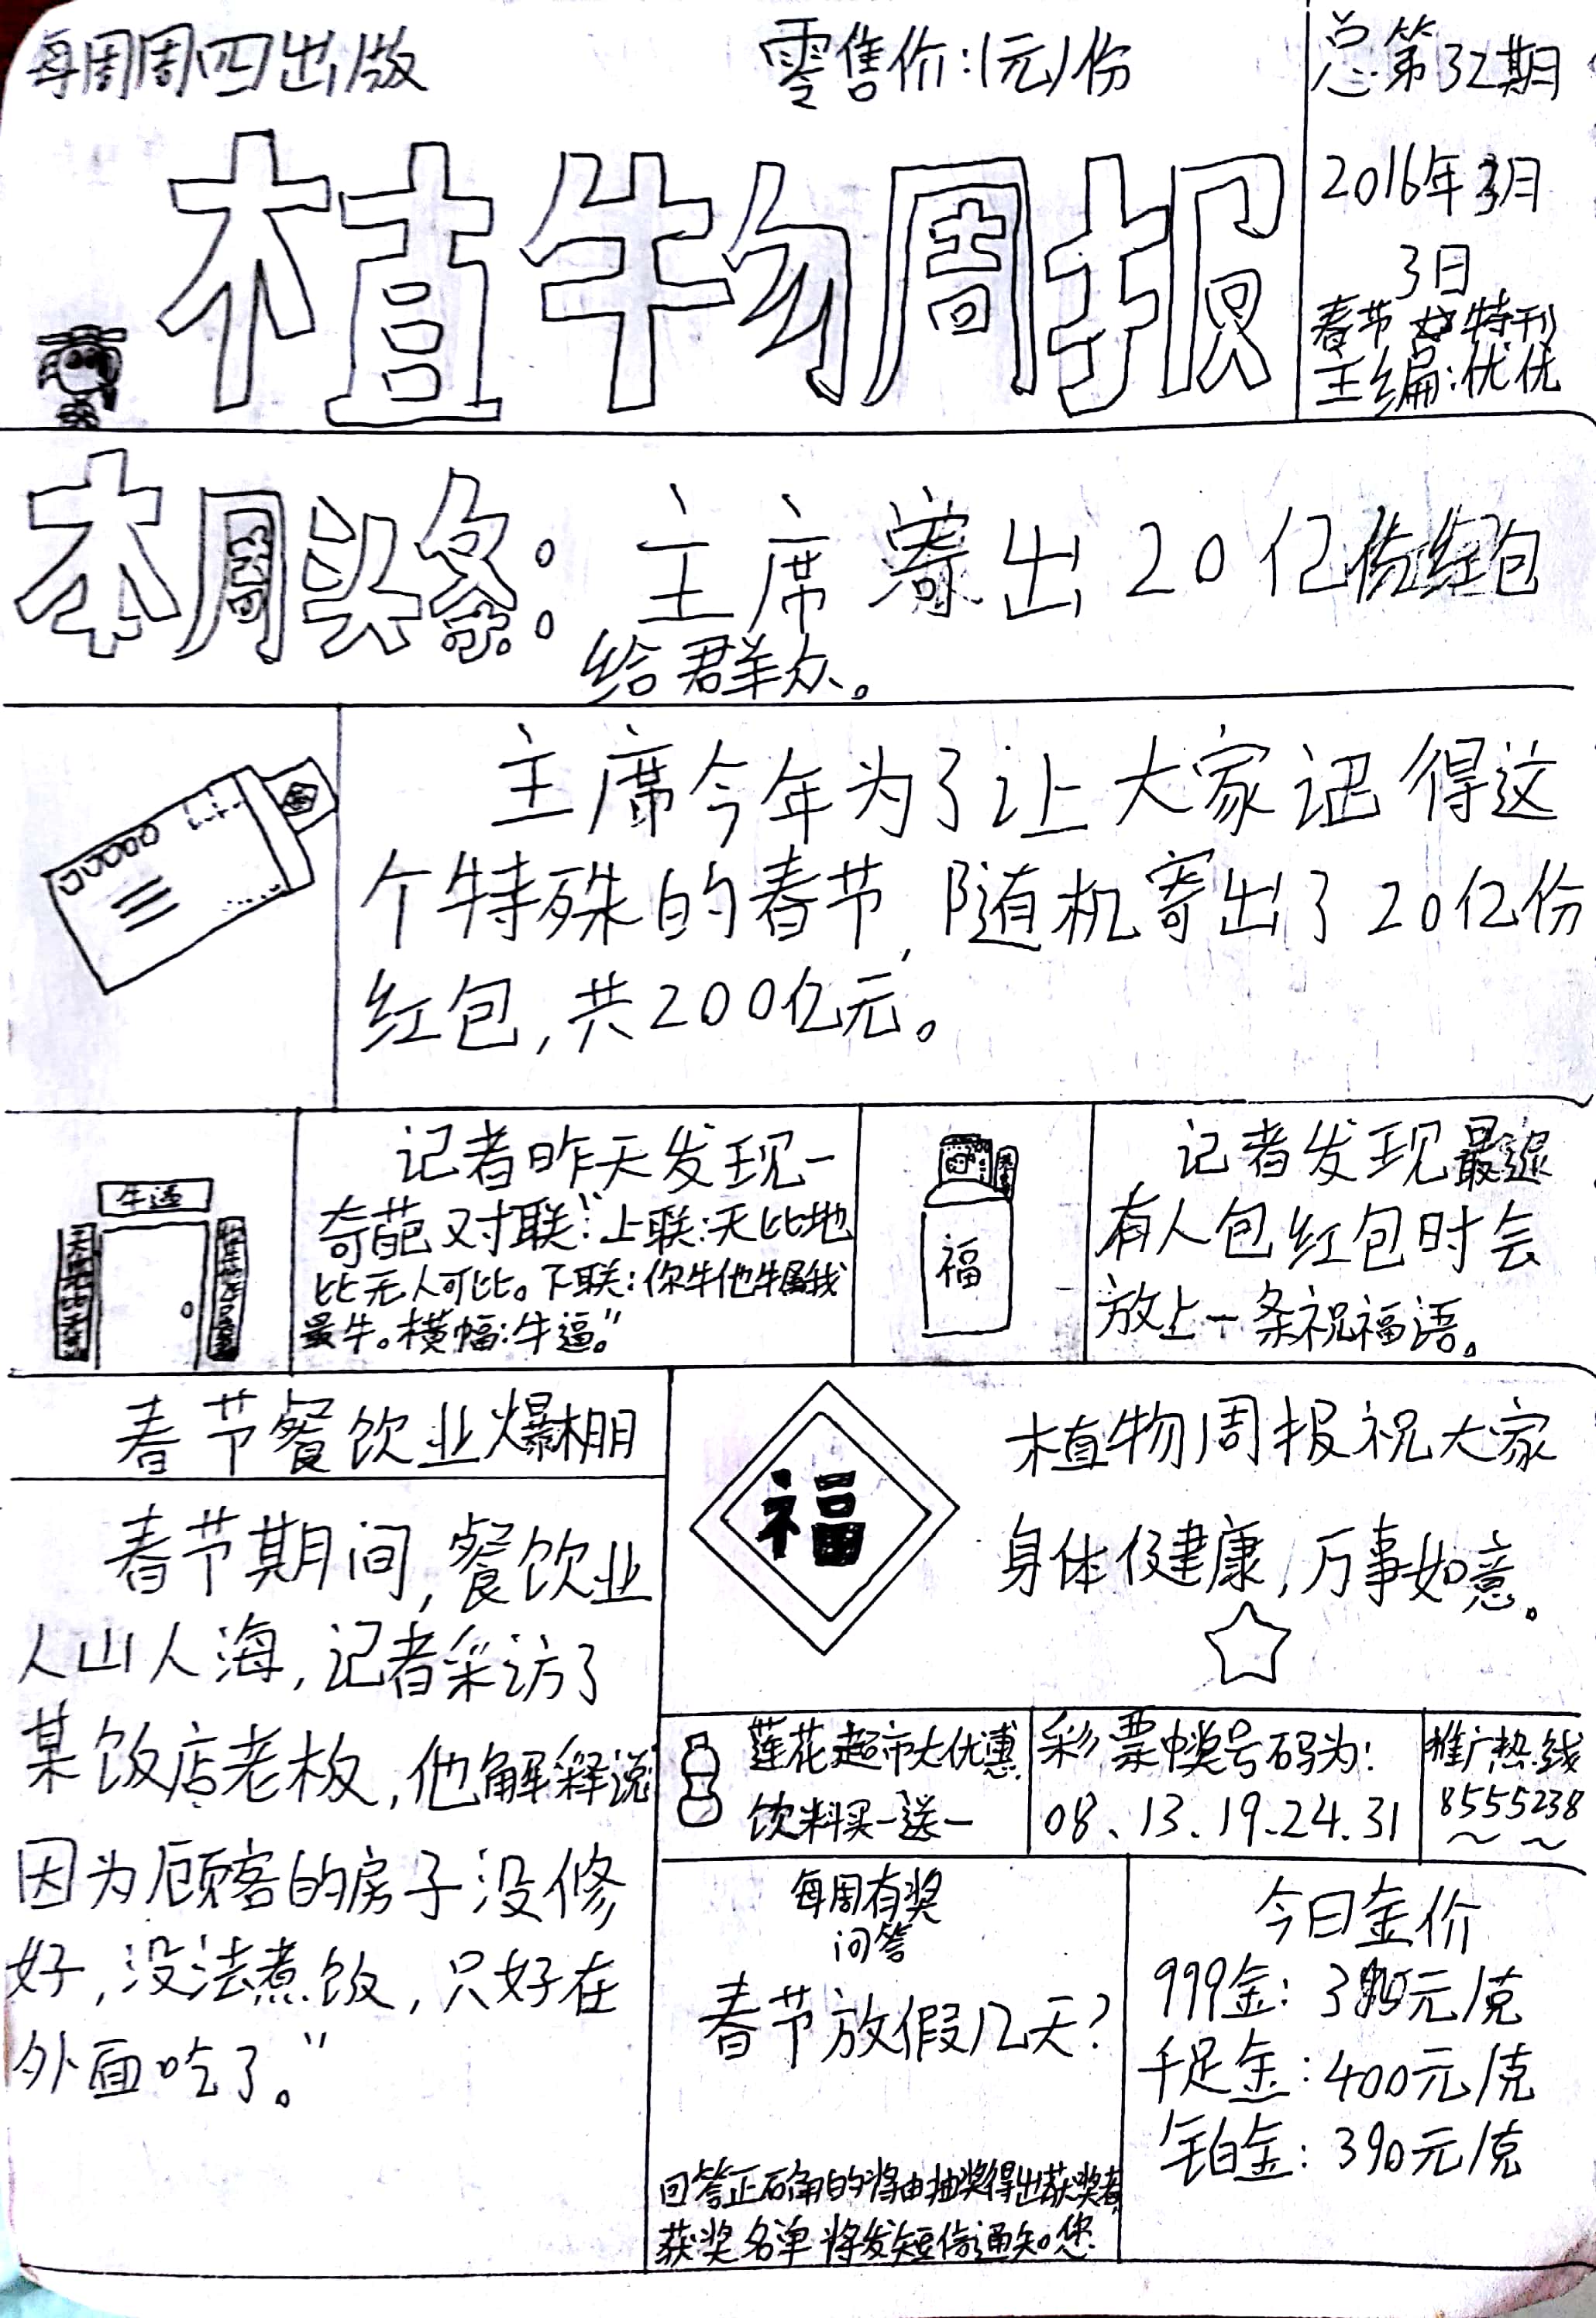 每周周四出版
零售价:1元/份
总第32期
2016年3月
3日
春节 特刊
主编:优优
植物周报
本周头条:主席寄出20亿份红包
给群众。
主席今年为了让大家记得这
个特殊的春节,随机寄出了20亿份
红包,共200亿元。
牛逼
记者昨天发现一
奇葩对联:“上联:天比地
比无人可比。下联:你牛他牛属我
最牛。横幅:牛逼。”
福
记者发现最近
有人包红包时会
放上一条祝福语。
春节餐饮业爆棚
春节期间,餐饮业
人山人海,记者采访了
某饭店老板,他解释说
因为顾客的房子没修
好,没法煮饭,只好在
外面吃了。”
福
植物周报祝大家
身体健康,万事如意。
莲花超市大优惠
饮料买一送一
彩票中奖号码为:
08、13、19、24、31
推广热线
8555238
每周有奖
问答
春节放假几天?
回答正确的将由抽奖得出获奖者
获奖名单将发短信通知您
今日金价
999金: 元/克
千足金:400元/克
铂金:390元/克